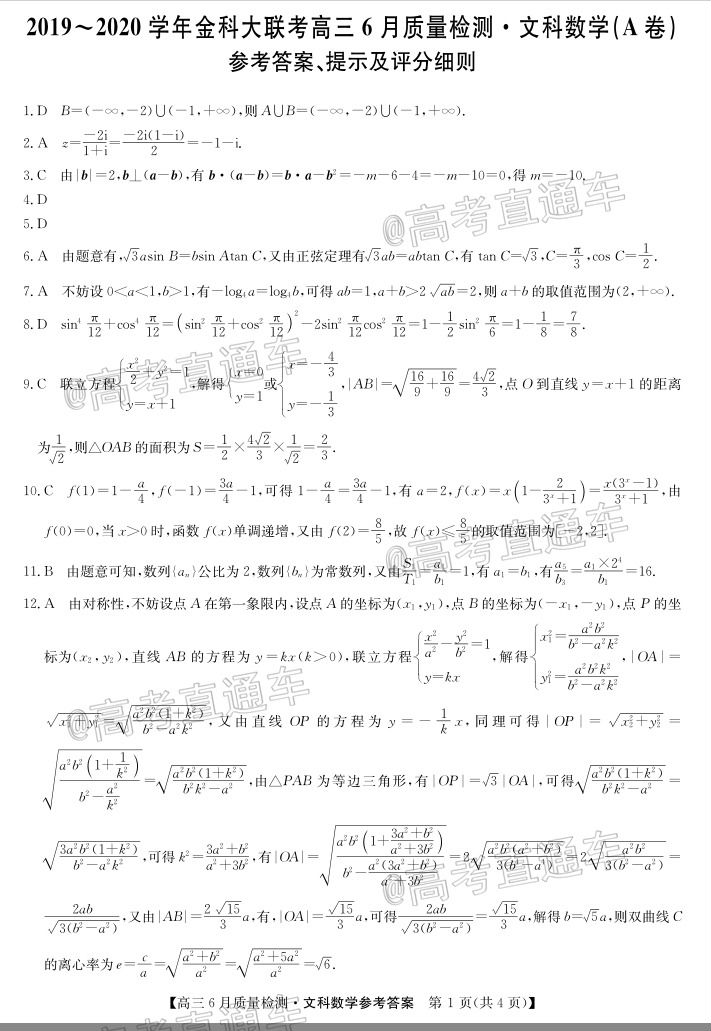 2019～2020 学年金科大联考高三 6 月质量检测·文科数学(A 卷)
参考答案、提示及评分细则
1. D B=(−∞,−2)∪(−1,+∞),则 A∪B=(−∞,−2)∪(−1,+∞).
2. A z=\frac{-2i}{1+i}=\frac{-2i(1-i)}{2}=−1−i.
3. C 由|b|=2,b⊥(a−b),有 b·(a−b)=b·a−b²=−m−6−4=−m−10=0,得 m=−10.
4. D
5. D
6. A 由题意有,√3asin B=bsin Atan C,又由正弦定理有√3ab=abtan C,有 tan C=√3,C=\frac{π}{3},cos C=\frac{1}{2}.
7. A 不妨设 0<a<1,b>1,有−log₄a=log₄b,可得 ab=1,a+b>2√ab=2,则 a+b 的取值范围为(2,+∞).
8. D sin⁴\frac{π}{12}+cos⁴\frac{π}{12}=(sin²\frac{π}{12}+cos²\frac{π}{12})²−2sin²\frac{π}{12}cos²\frac{π}{12}=1−\frac{1}{2}sin²\frac{π}{6}=1−\frac{1}{8}=\frac{7}{8}.
9. C 联立方程{\frac{x²}{2}+y²=1 y=x+1,解得{x=0 y=1或{x=−\frac{4}{3} y=−\frac{1}{3},|AB|=\sqrt{\frac{16}{9}+\frac{16}{9}}=\frac{4√2}{3},点 O 到直线 y=x+1 的距离
为\frac{1}{√2},则△OAB 的面积为 S=\frac{1}{2}×\frac{4√2}{3}×\frac{1}{√2}=\frac{2}{3}.
10. C f(1)=1−\frac{a}{4},f(−1)=\frac{3a}{4}−1,可得 1−\frac{a}{4}=\frac{3a}{4}−1,有 a=2,f(x)=x(1−\frac{2}{3ˣ+1})=\frac{x(3ˣ−1)}{3ˣ+1},由
f(0)=0,当 x>0 时,函数 f(x)单调递增,又由 f(2)=\frac{8}{5},故 f(x)≤\frac{8}{5}的取值范围为[−2,2].
11. B 由题意可知,数列{aₙ}公比为 2,数列{bₙ}为常数列,又由\frac{S₁}{T₁}=\frac{a₁}{b₁}=1,有 a₁=b₁,有\frac{a₅}{b₃}=\frac{a₁×2⁴}{b₁}=16.
12. A 由对称性,不妨设点 A 在第一象限内,设点 A 的坐标为(x₁,y₁),点 B 的坐标为(−x₁,−y₁),点 P 的坐
标为(x₂,y₂),直线 AB 的方程为 y=kx(k>0),联立方程{\frac{x²}{a²}−\frac{y²}{b²}=1 y=kx,解得{x₁²=\frac{a²b²}{b²−a²k²} y₁²=\frac{a²b²k²}{b²−a²k²},|OA|=
\sqrt{x₁²+y₁²}=\sqrt{\frac{a²b²(1+k²)}{b²−a²k²}},又由直线 OP 的方程为 y=−\frac{1}{k}x,同理可得|OP|=\sqrt{x₂²+y₂²}=
\sqrt{\frac{a²b²(1+\frac{1}{k²})}{b²−\frac{a²}{k²}}}=\sqrt{\frac{a²b²(1+k²)}{b²k²−a²}},由△PAB 为等边三角形,有|OP|=√3|OA|,可得\sqrt{\frac{a²b²(1+k²)}{b²k²−a²}}=
\sqrt{\frac{3a²b²(1+k²)}{b²−a²k²}},可得 k²=\frac{3a²+b²}{a²+3b²},有|OA|=\sqrt{\frac{a²b²(1+\frac{3a²+b²}{a²+3b²})}{b²−\frac{a²(3a²+b²)}{a²+3b²}}}=2\sqrt{\frac{a²b²(a²+b²)}{3(b⁴−a⁴)}}=2\sqrt{\frac{a²b²}{3(b²−a²)}}=
\frac{2ab}{\sqrt{3(b²−a²)}},又由|AB|=\frac{2√15}{3}a,有,|OA|=\frac{√15}{3}a,可得\frac{2ab}{\sqrt{3(b²−a²)}}=\frac{√15}{3}a,解得 b=√5a,则双曲线 C
的离心率为 e=\frac{c}{a}=\sqrt{\frac{a²+b²}{a²}}=\sqrt{\frac{a²+5a²}{a²}}=√6.
【高三 6 月质量检测·文科数学参考答案 第 1 页(共 4 页)】
@高考直通车
@高考直通车
@高考直通车
@高考直通车
@高考直通车